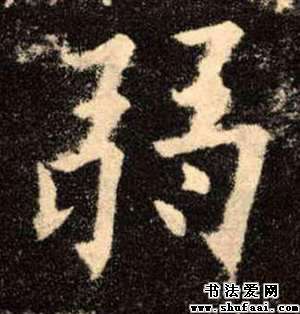 弱
书法爱网
www.shufaai.com